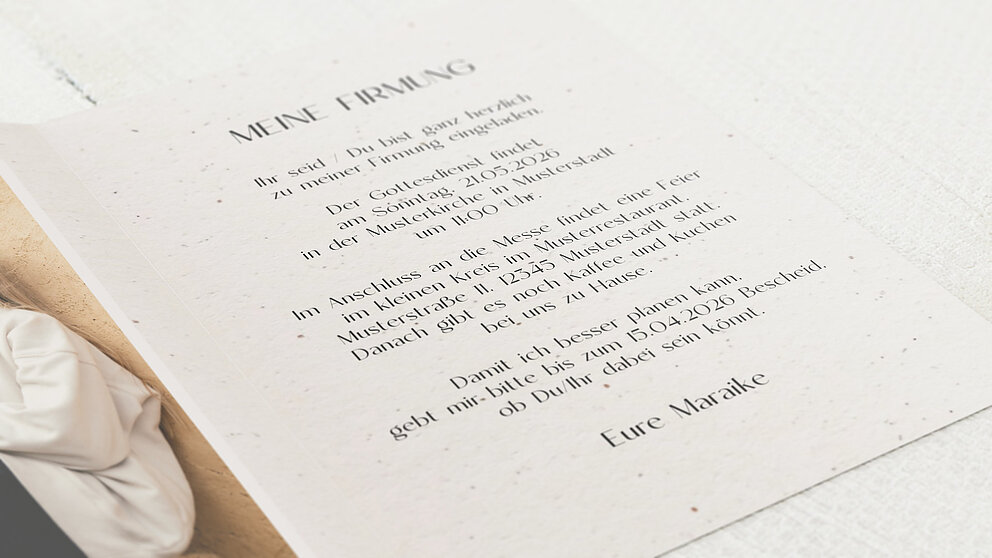 MEINE FIRMUNG
Ihr seid / Du bist ganz herzlich
zu meiner Firmung eingeladen.
Der Gottesdienst findet
am Sonntag, 21.05.2026
in der Musterkirche in Musterstadt
um 11:00 Uhr.
Im Anschluss an die Messe findet eine Feier
im kleinen Kreis im Musterrestaurant,
Musterstraße 11, 12345 Musterstadt statt.
Danach gibt es noch Kaffee und Kuchen
bei uns zu Hause.
Damit ich besser planen kann,
gebt mir bitte bis zum 15.04.2026 Bescheid,
ob Du/Ihr dabei sein könnt.
Eure Maraike